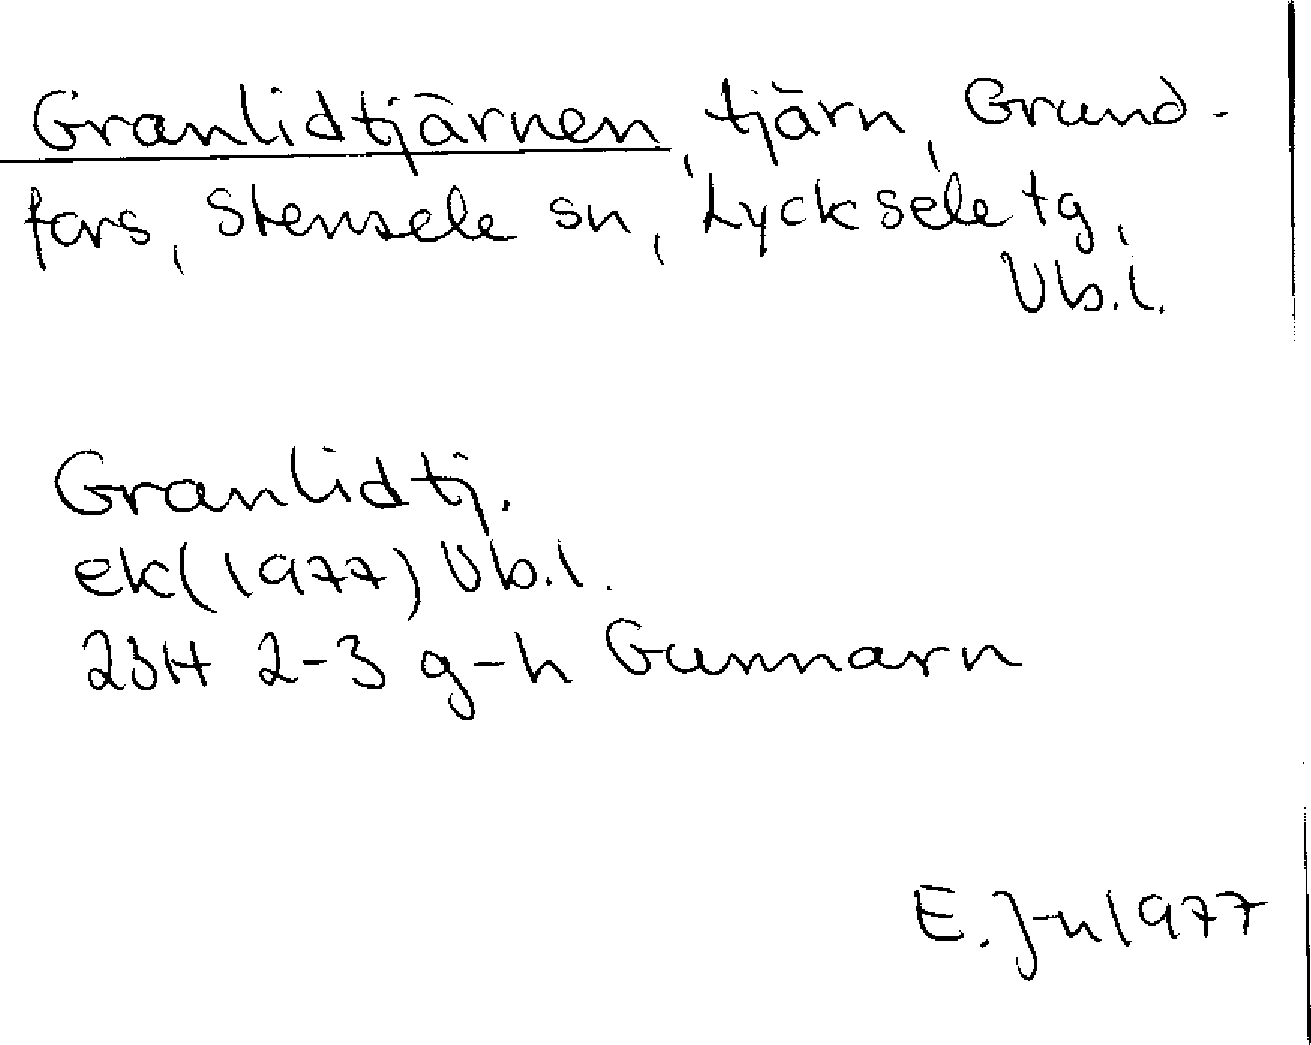 Granlidtjärnen, tjärn, Grund-
fors, Stensele sn, Lycksele tg,
Vb.l.
Granlidtj.
ek(1977) Vb.l.
23H 2-3 g-h Gunnarn
E.J-n 1977